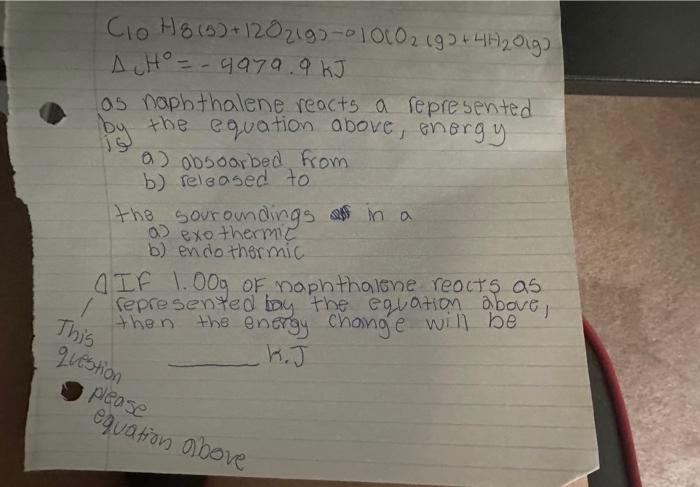 C10 H8(s)+12O2(g)→10CO2(g)+4H2O(g)
ΔcH°= -4979.9 kJ
as naphthalene reacts a represented
by the equation above, energy
is
a) absoarbed from
b) released to
the souroundings in a
a) exothermic
b) endothermic
If 1.00g of naphthalene reacts as
represented by the equation above,
then the energy change will be
______ kJ
This
question
please
equation above